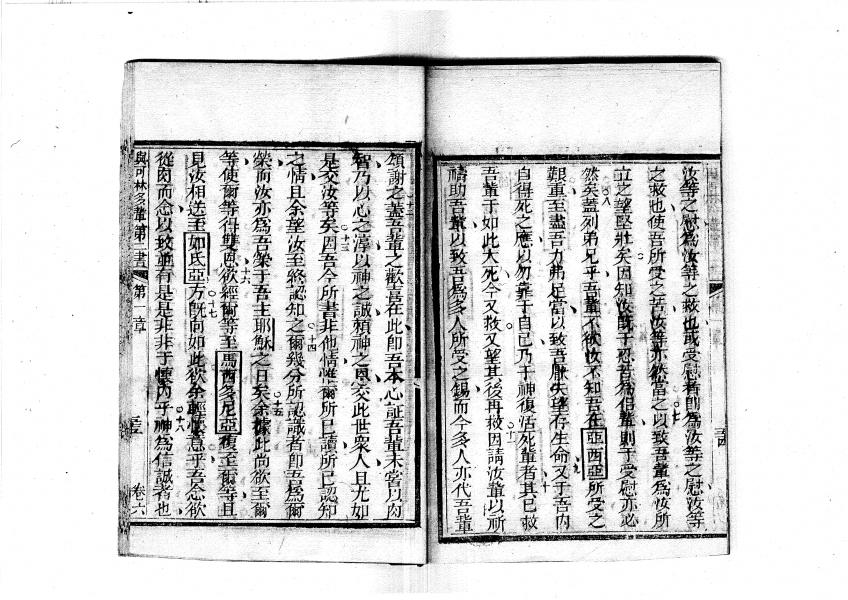 汝等之慰為汝等之救也或受慰者即為汝等之慰汝等
之救也使吾所受之苦汝等亦然當之以致吾輩為汝所
立之望堅壯矣因知汝既于忍苦為侶輩則于受慰亦必
然矣蓋列弟兄乎吾輩不欲汝不知吾在亞西亞所受之
艱重至盡吾力弗足當以致吾厭失望存生命又于吾內
自得死之應以勿靠于自己乃于神復活死輩者其已救
吾輩于如此大死今又救又望其後再救因請汝輩以祈
禱助吾輩以致吾為多人所受之錫而今多人亦代吾輩
頌謝之蓋吾輩之歡喜在此即吾本心証吾輩未嘗以肉
智乃以心之淳以神之誠賴神之恩交此世眾人且尤如
是交汝等矣因吾今所書非他情惟爾所已讀所已認知
之情且余望汝至終認知之爾幾分所認識者即吾為爾
榮而汝亦為吾榮于吾主耶穌之日矣余據此尚欲至爾
等使爾等得雙恩欲經爾等至馬西多尼亞復至爾等且
見汝相送至如氐亞方既向如此欲余輕懷意乎吾念欲
從肉而念以致並有是是非非于懷內乎神為信誠者也
與可林多輩第二書 第一章 卷六